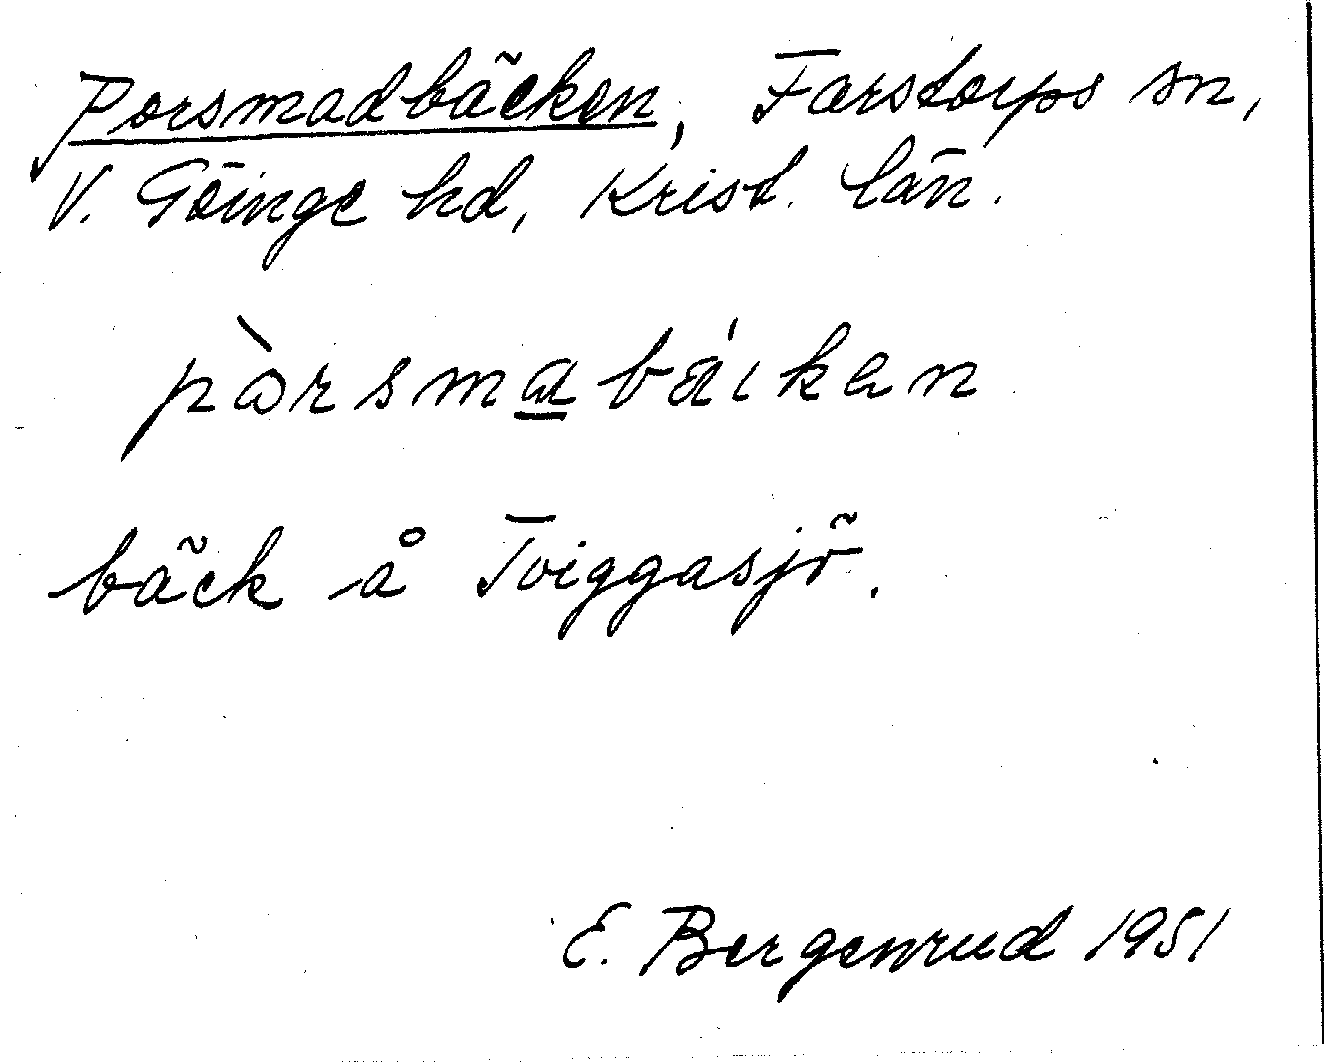 Porsmadbäcken, Farstorps sn,
V. Göinge hd, Krist. län.
pàrsmabä́ıkan
bäck å Tviggasjö.
E. Bergenrud 1951